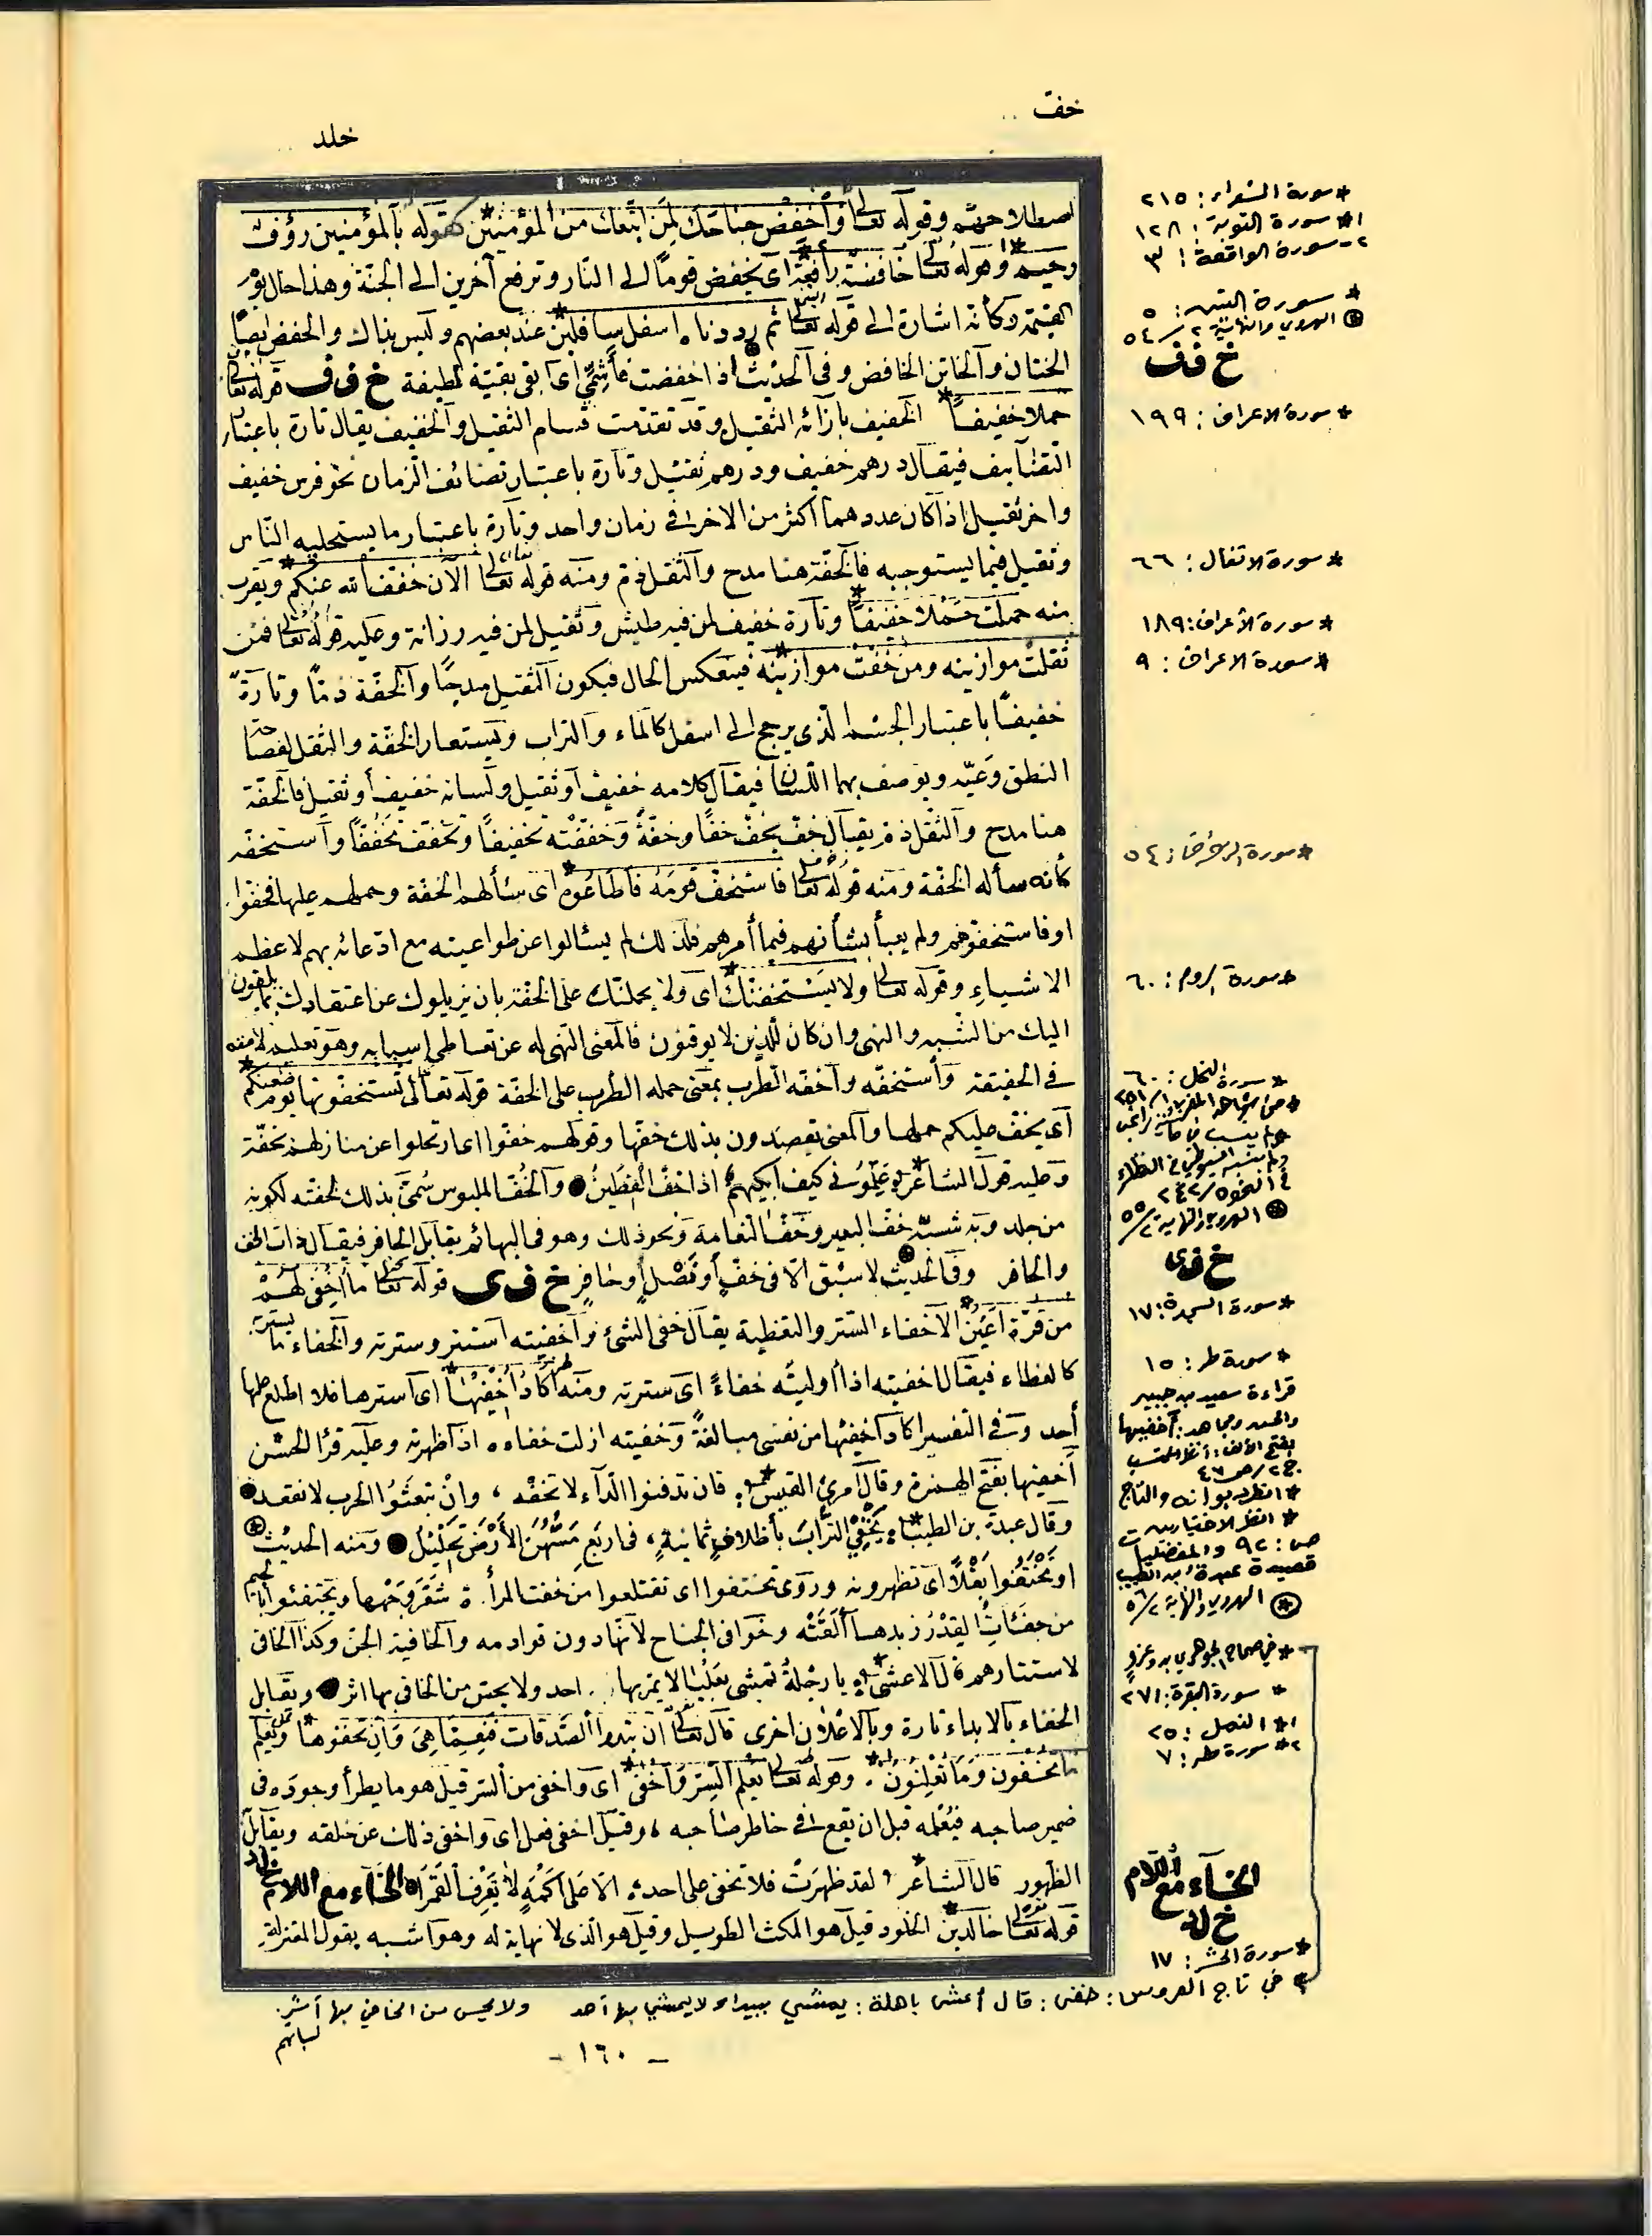 خفت
خلد
اصطلاحهم وقوله تعالى وأخفض جناحك لمن اتبعك من المؤمنين كقوله بالمؤمنين رؤف
رحيم وقوله تعالى خافضة رافعة اى يخفض قوما الى النار وترفع آخرين الى الجنة وهذا حال يوم
القيمة وكأنه اشارة الى قوله تعالى ثم رددناه اسفل سافلين عند بعضهم وليس بذاك والخفض ايضا
الختان والخاتن الخافض وفى الحديث اذا خفضت فأشمى اى ابقى بقية لطيفة خ ف ف قوله تعالى
حملا خفيفا الخفيف بازائه الثقيل وقد تقدمت قسام الثقيل والخفيف يقال تارة باعتبار
التضايف فيقال درهم خفيف ودرهم ثقيل وتارة باعتبار تضائف الزمان نحو فرس خفيف
واخر ثقيل اذا كان عدد هما اكثر من الاخر فى زمان واحد وتارة باعتبار ما يستحليه الناس
وثقيل فيما يستوجبه فالخفة هنا مدح والثقل ذم ومنه قوله تعالى الآن خفف الله عنكم ويقرب
منه حملت حملا خفيفا وتارة خفيف لمن فيه طيش وثقيل لمن فيه رزانة وعليه قوله تعالى فمن
ثقلت موازينه ومن خفت موازينه فينعكس الحال فيكون الثقيل مدحا والخفة ذما وتارة
خفيفا باعتبار الجسم الذى يرجح الى اسفل كالماء والتراب ويستعار الخفة والثقل لفصاحة
النطق وعيه ويوصف بهما اللسان فيقال كلامه خفيف أو ثقيل ولسانه خفيف أو ثقيل فالخفة
هنا مدح والثقل ذم يقال خف يخف خفا وخفة وخففته تخفيفا وتخفف تخففا واستخفه
كأنه سأله الخفة ومنه قوله تعالى فاستخف قومه فأطاعوه اى سألهم الخفة وحملهم عليها فخفوا
او فاستخفوهم ولم يعبأ بشأنهم فيما أمرهم فلذلك لم يسئالوا عن طواعيته مع ادعائه بهم لاعظم
الاشياء وقوله تعالى ولا يستخفنك اى ولا يحملنك على الخفة بان يزيلوك عن اعتقادك بما يلقون
اليك من الشبه والنهى وان كان للذين لا يوقنون فالمعنى النهى له عن تعاطى اسبابه وهو تعليم لامته
فى الحقيقة وأستخفه وأخفه الطرب بمعنى حمله الطرب على الخفة قوله تعالى تستخفونها يوم ظعنكم
اى يخف عليكم حملها والمعنى تقصدون بذلك خفتها وقولهم خفوا اى ارتحلوا عن منازلهم بخفة
وعليه قول الشاعر علمونى كيف ابكيهم اذا خف القطين والخف الملبوس سمى بذلك لخفته لكونه
من جلد وبه شبه خف البعير وخف النعامة ونحو ذلك وهو فى البهائم يقابل الحافر فيقال ذات الخف
والحافر وفى الحديث لا سبق الا فى خف أو نصل أو حافر خ ف ى قوله تعالى ما أخفى لهم
من قرة أعين الاخفاء الستر والتغطية يقال خفى الشئ وأخفيته استتر وسترته والخفاء ما يستربه
كالغطاء فيقال اخفيته اذا أوليته خفاء اى سترته ومنه اكاد أخفيها اى أسترها فلا اطلع عليها
أحد وفى التفسير اكاد اخفيها من نفسى مبالغة وخفيته ازلت خفاءه اذا ظهرته وعليه قرأ الحسن
أخفيها بفتح الهمزة وقال امرئ القيس فان تدفنوا الداء لا تخفه ، وان تبعثوا الحرب لا نقعد
وقال عبدة بن الطبيب يخفى التراب بأظلاف ثمانية ، فى اربع مسهن الأرض تحليل ومنه الحديث
او تختفوا بقلا اى تظهرونه وروى تحتفوا اى تقتلعوا من حفت المرأة شعر وجهها
من جفئات القدر زبدها ألقته وخوافى الجناح لأنها دون قوادمه والخافية الجن وكذا الخافى
لاستتارهم قال الاعشى يا رجلة تمشى لا يمر بها احد ولا يحس من الخافى بها اثر ويقابل
الخفاء بالابداء تارة وبالاعلان اخرى قال تعالى ان تبدوا الصدقات فنعما هى وان تخفوها ويعلم
ما تخفون وما تعلنون . وقوله تعالى يعلم السر وأخفى اى واخفى من السر قيل هو ما يطرأ وجوده فى
ضمير صاحبه فيعلمه قبل ان يقع فى خاطر صاحبه ، وقيل اخفى فعل اى واخفى ذلك عن خلقه ويقابل
الظهور قال الشاعر لقد ظهرت فلا تخفى على احد الا على اكمه لا يعرف القمرا الخاء مع اللام خ ل د
قوله تعالى خالدين الخلود قيل هو المكث الطويل وقيل هو الذى لا نهاية له وهو اشبه بقول المعتزلة
* سورة الشعراء : ٢١٥
*١ سورة التوبة : ١٢٨
٢- سورة الواقعة : ٣
* سورة التين : ٥
الهروي والنهاية ٢/٥٤
خ ف ف
* سورة الاعراف : ١٩٩
* سورة الانفال : ٦٦
* سورة الأعراف : ١٨٩
* سورة الاعراف : ٩
* سورة الزخرف : ٥٤
* سورة الروم : ٦٠
* سورة النحل : ٦٠
الهروي والنهاية ٢/٥٥
خ ف ى
* سورة السجدة : ١٧
* سورة طه : ١٥
قراءة سعيد بن جبير
والحسن ومجاهد : أخفيها
بفتح الألف : أنظر المحتسب
ج٢/ص٤٧
* انظر ديوانه والتاج
* انظر الاختيارين
ص : ٩٢ والمفضليات
قصيدة عبدة بن الطبيب
* الهروي والنهاية ٢/٥٦
* في صحاح الجوهري
* سورة البقرة : ٢٧١
*١ النمل : ٢٥
*٢ سورة طه : ٧
الخاء مع اللام
خ ل د
* سورة الحشر : ١٧
* في تاج العروس : خفى : قال أعشى باهلة : يمشي ببيداء لا يمشي بها أحد ولا يحس من الخافي بها أثر
- ١٦٠ -